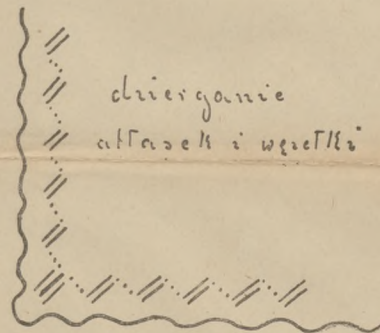 dzierganie
atłasek i węzełki